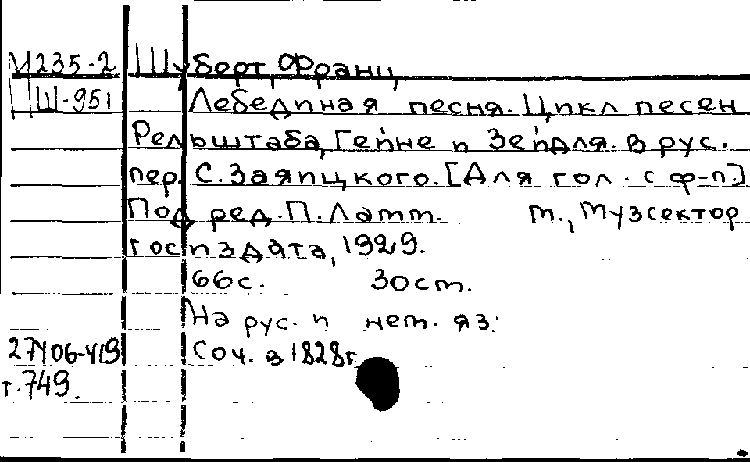 М235-2 Шуберт, Франц
Ш-951 Лебединая песня. Цикл песен
Рельштаба, Гейне и Зейдля. В рус.
пер. С. Заяицкого. [Для гол. с ф-п]
Под ред. П. Ламм. М., Музсектор
госиздата, 1929.
66с. 30см.
На рус. и нем. яз.
Соч. в 1828г.
г.749.